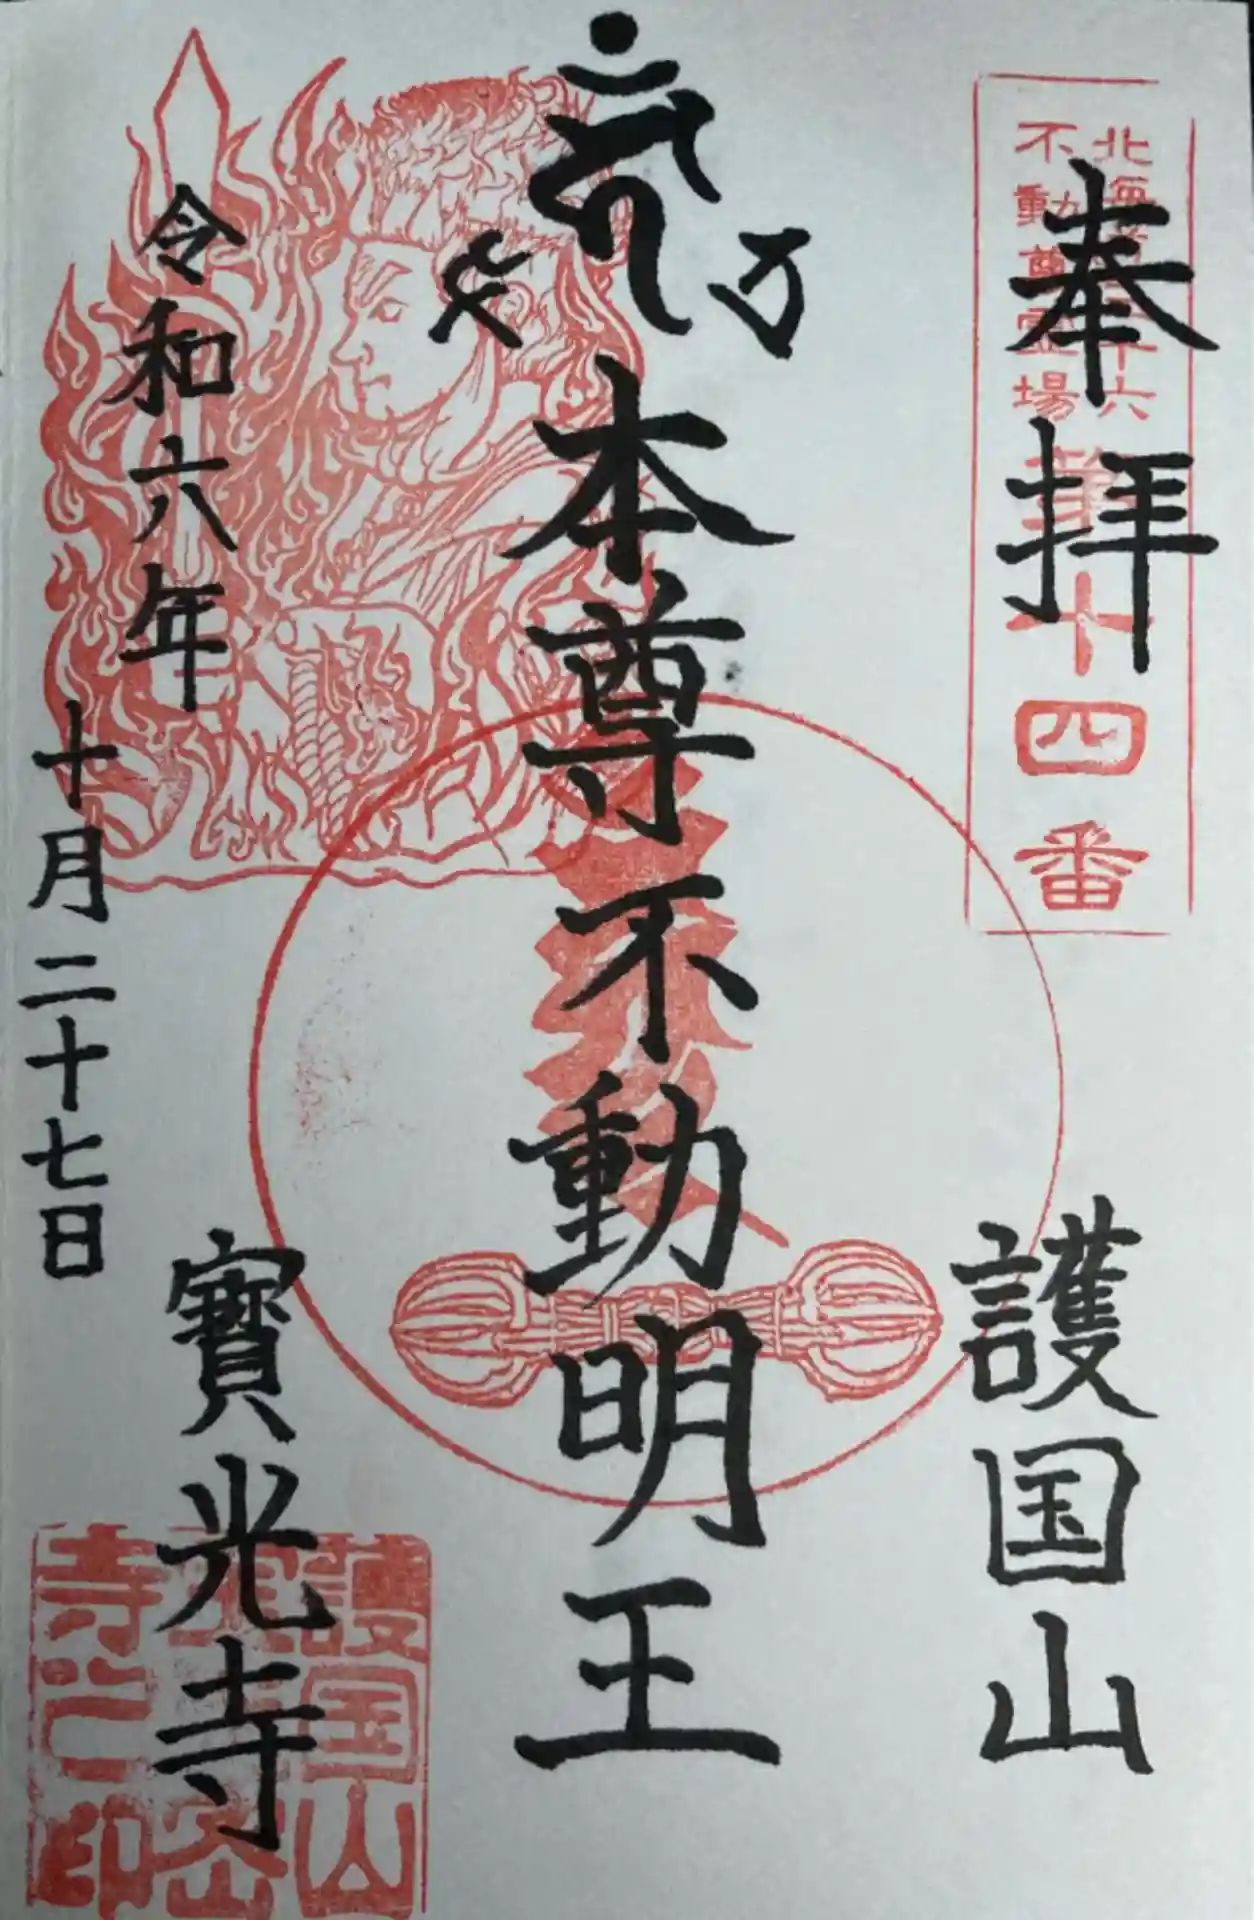 奉拝
北海道三十六
不動尊霊場
第十四番
護国山
本尊不動明王
令和六年
十月二十七日
寶光寺
護国山
寺之印